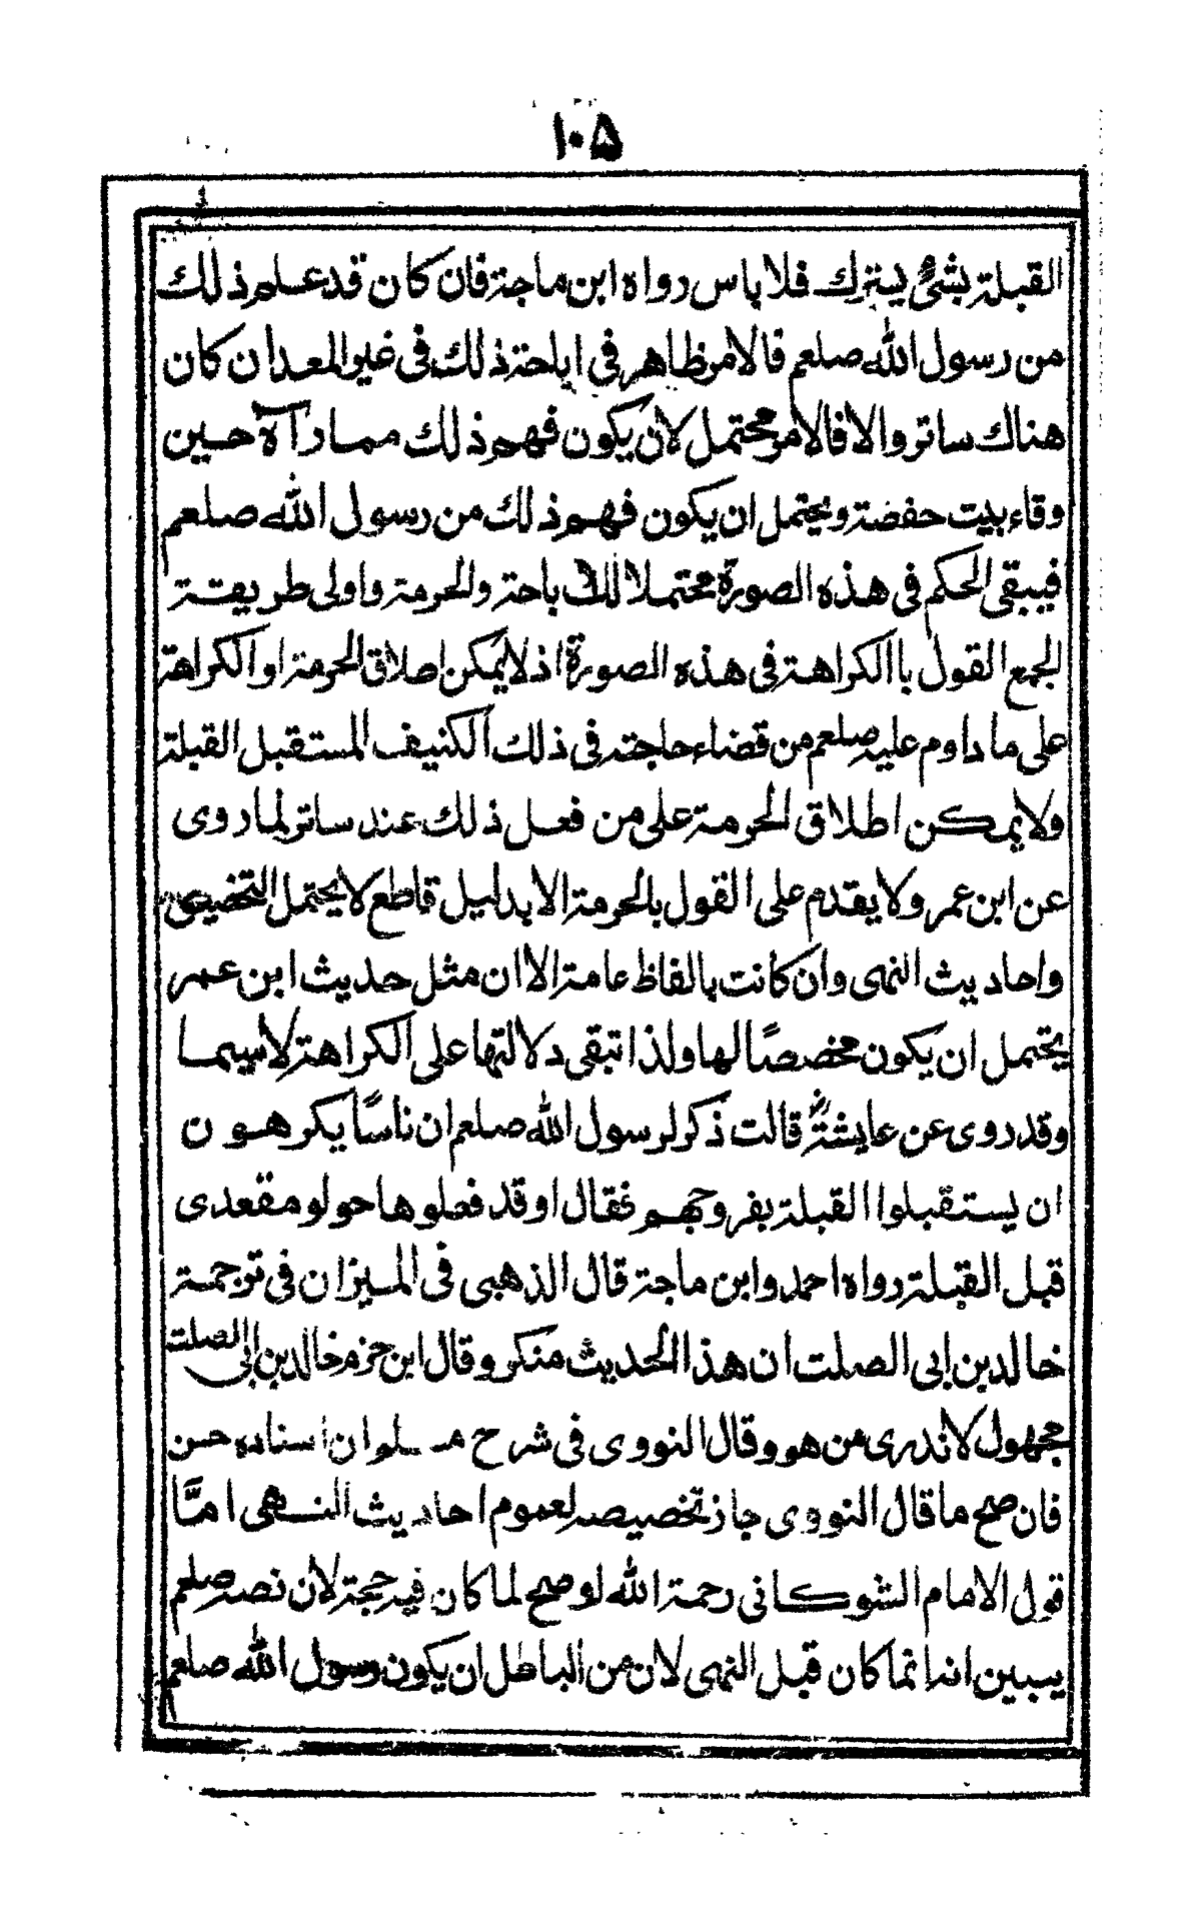 ۱۰۵
القبلة بشئ يسترك فلا باس رواه ابن ماجة فان كان قد علم ذلك
من رسول الله صلعم فالامر ظاهر في اباحة ذلك في غير المعد ان كان
هناك ساتر والا فالامر محتمل لان يكون فهم ذلك مما رآه حين
وقاء بيت حفضة ويحتمل ان يكون فهم ذلك من رسول الله صلعم
فيبقى الحكم في هذه الصورة محتملا للاباحة والحرمة واولى طريقة
الجمع القول باالكراهة في هذه الصورة اذ لا يمكن اصلاق الحرمة او الكراهة
على ما داوم عليه صلعم من قضاء حاجته في ذلك الكنيف المستقبل القبلة
ولا يمكن اطلاق الحرمة على من فعل ذلك عند ساتر لما روى
عن ابن عمر ولا يقدم على القول بالحرمة الا بدليل قاطع لا يحتمل التخصيص
واحاديث النهى وان كانت بالفاظ عامة الا ان مثل حديث ابن عمر
يحتمل ان يكون مخصصًا لها ولذا تبقى دلالتها على الكراهة لا سيما
وقد روى عن عايشةؓ قالت ذكر لرسول الله صلعم ان ناسًا يكرهون
ان يستقبلوا القبلة بفروجهم فقال اوقد فعلوها حولو مقعدى
قبل القبلة رواه احمد وابن ماجة قال الذهبى فى الميزان في ترجمة
خالد بن ابى الصلت ان هذا الحديث منكر وقال ابن حزم خالد بن ابى الصلت
مجهول لا ندرى من هو وقال النووى فى شرح مسلم ان اسناده حسن
فان صح ما قال النووى جاز تخصيصه لعموم احاديث النهى امّا
قول الامام الشوكانى رحمة الله لو صح لما كان فيه حجة لان نصه صلعم
يبين انه انما كان قبل النهى لان من الباطل ان يكون رسول الله صلعم